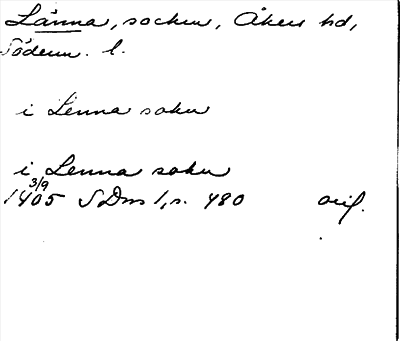 Länna, socken, Åkers hd,
Söderm. l.
i Lenna sokn
i Lenna sokn
3/9
1405 SDns 1, s. 480 orig.